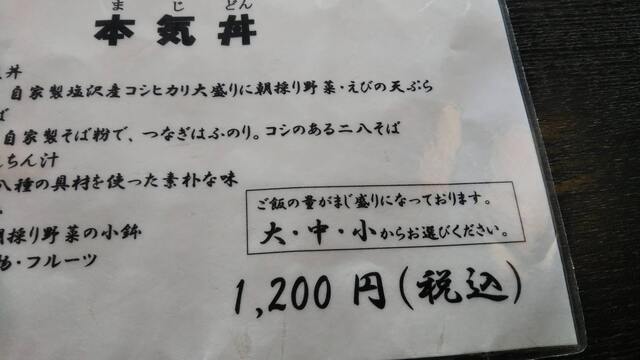 まじどん
本気丼
丼
自家製塩沢産コシヒカリ大盛りに朝採り野菜・えびの天ぷら
ば
自家製そば粉で、つなぎはふのり。コシのある二八そば
ちん汁
八種の具材を使った素朴な味
朝採り野菜の小鉢
物・フルーツ
ご飯の量がまじ盛りになっております。
大・中・小からお選びください。
1,200円(税込)